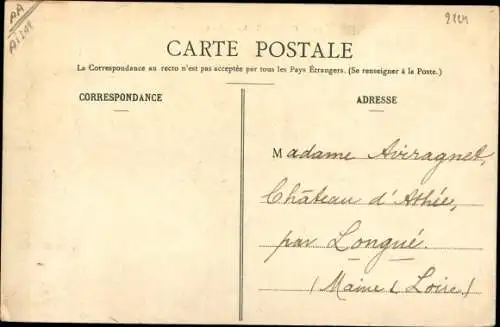 AA
2124
CARTE POSTALE
La Correspondance au recto n'est pas acceptée par tous les Pays Étrangers. (Se renseigner à la Poste.)
CORRESPONDANCE
ADRESSE
Madame Aviragnet,
Château d'Athée,
par Longué.
(Maine & Loire)